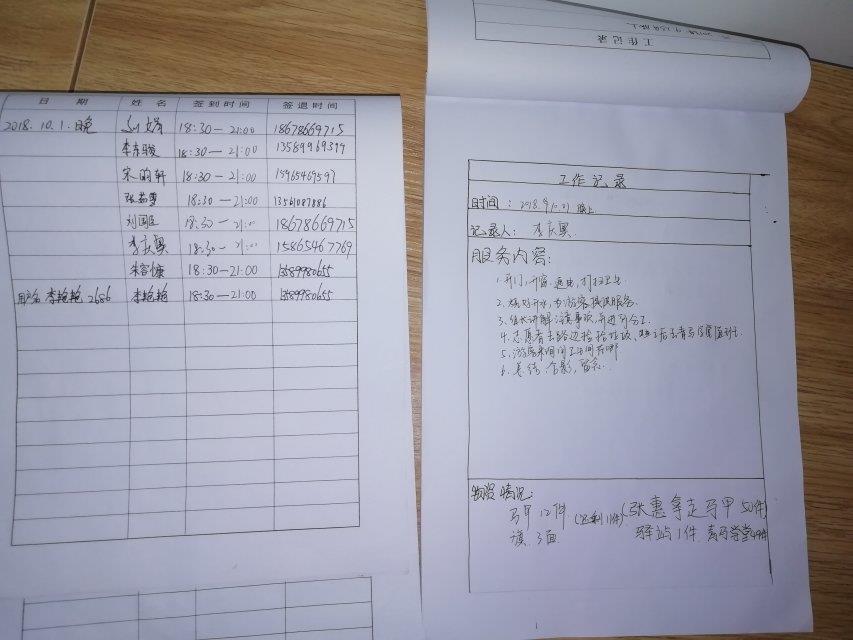 日 期 姓 名 签到时间 签退时间
2018.10.1.晚 18:30—21:00 18678669715
李东骏 18:30—21:00 13589969379
宋昀轩 18:30—21:00 15965469597
张茹雪 18:30—21:00 13561087886
刘国臣 18:30—21:00 18678669715
李庆昊 18:30—21:00 15865467769
朱容慷 18:30—21:00 13589980655
用户名 李艳艳 2686 李艳艳 18:30—21:00 13589980655
工作记录
工作记录
时间: 晚上
记录人: 李庆昊
服务内容:
1.开门,开窗,通电,打扫卫生
2.烧好开水,为游客提供服务.
3.组长讲解注意事项,并进行分工.
4.志愿者去路边捡拾垃圾,
5.游客来询问卫生间在哪
6.总结,合影,留念.
物资情况:
马甲12件 (还剩11件) (张惠拿走马甲50件)
旗3面 驿站1件
1